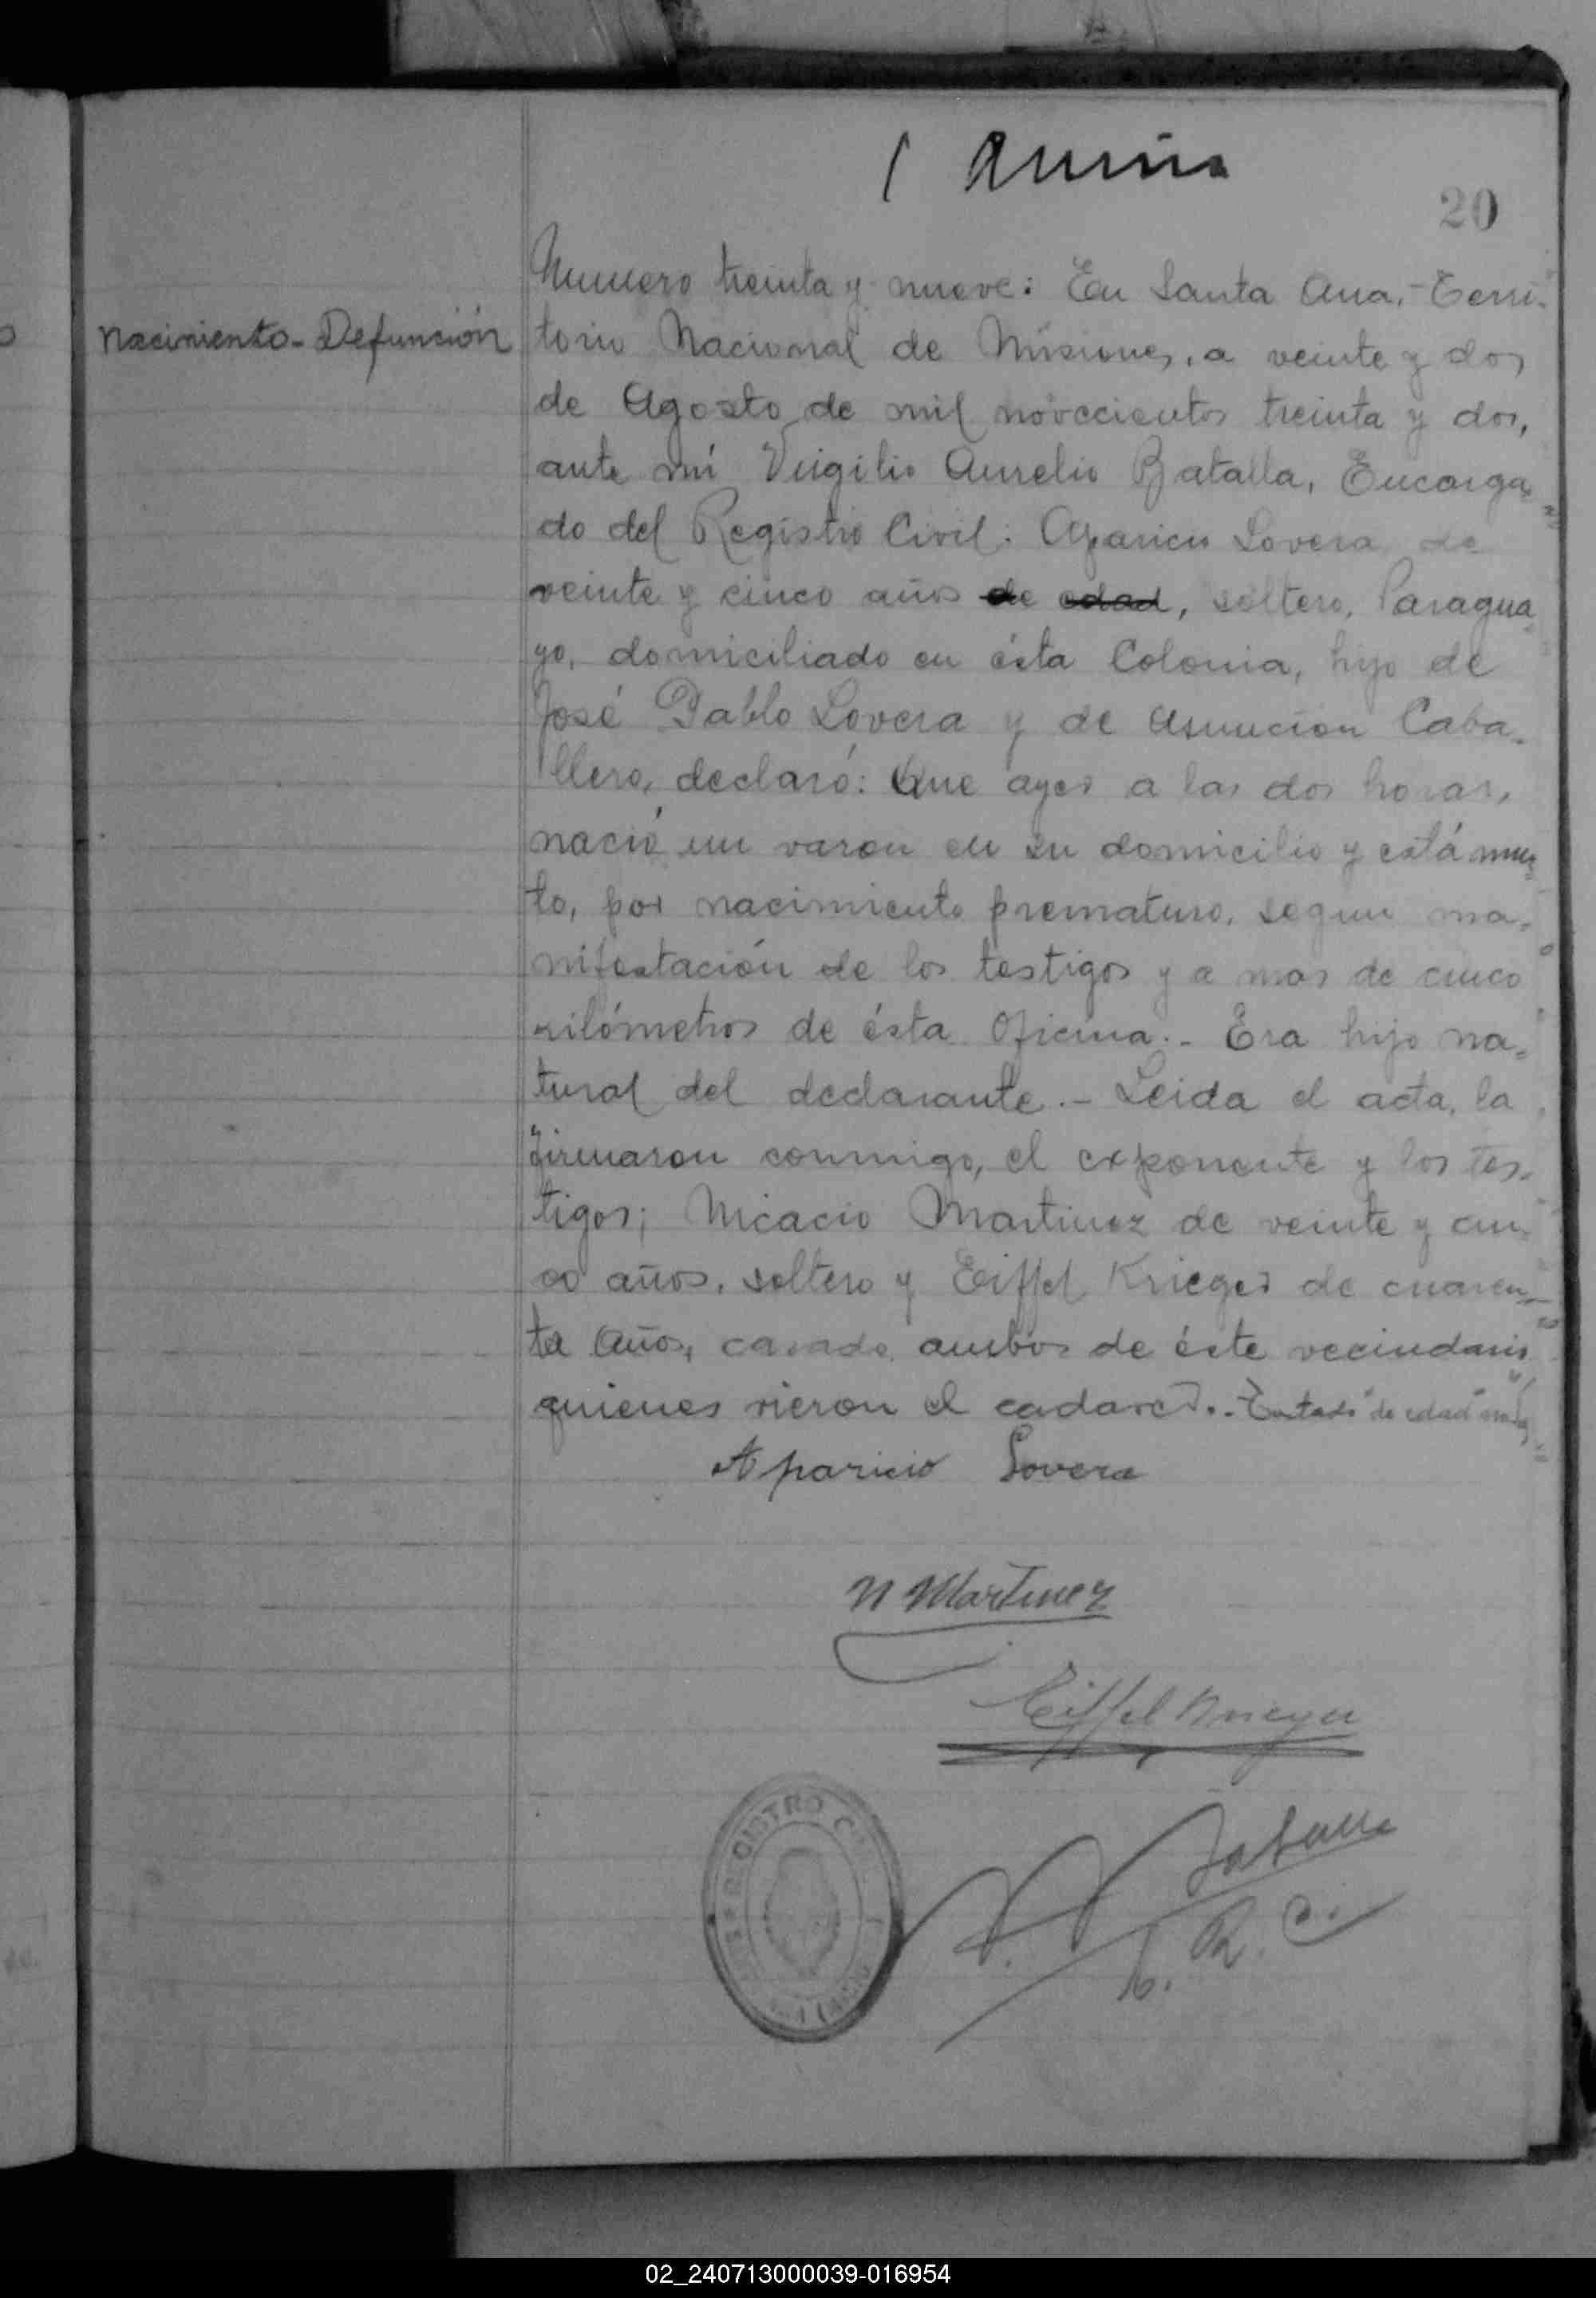 20
Nacimiento - Defunción
Numero treinta y nueve: En Santa Ana, - Terri-
torio Nacional de Misiones, a veinte y dos
de Agosto de mil novecientos treinta y dos,
ante mi Virgilio Aurelio Batalla, Encarga-
do del Registro Civil: Aparicio Lovera de
veinte y cinco años de edad, soltero, Paragua-
yo, domiciliado en ésta Colonia, hijo de
José Pablo Lovera y de Asuncion Caba-
llero, declaró: Que ayer a las dos horas,
nació un varon en su domicilio y está muer-
to, por nacimiento prematuro, segun ma-
nifestación de los testigos y a mas de cinco
kilómetros de ésta Oficina.- Era hijo na-
tural del declarante.- Leida el acta, la
firmaron conmigo, el exponente y los tes-
tigos; Nicacio Martinez de veinte y cin-
co años, soltero y Eiffel Krieger de cuaren-
ta años, casado, ambos de éste vecindario
quienes vieron el cadaver.- Testado "de edad"
Aparicio Lovera
N Martinez
Eiffel Krieger
REGISTRO
Batalla
E. R. C.
02_240713000039-016954